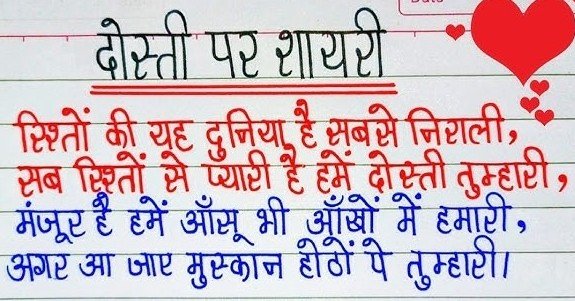 दोस्ती पर शायरी
रिश्तों की यह दुनिया है सबसे निराली,
सब रिश्तों से प्यारी है हमें दोस्ती तुम्हारी,
मंजूर है हमें आँसू भी आँखों में हमारी,
अगर आ जाए मुस्कान होठों पे तुम्हारी।